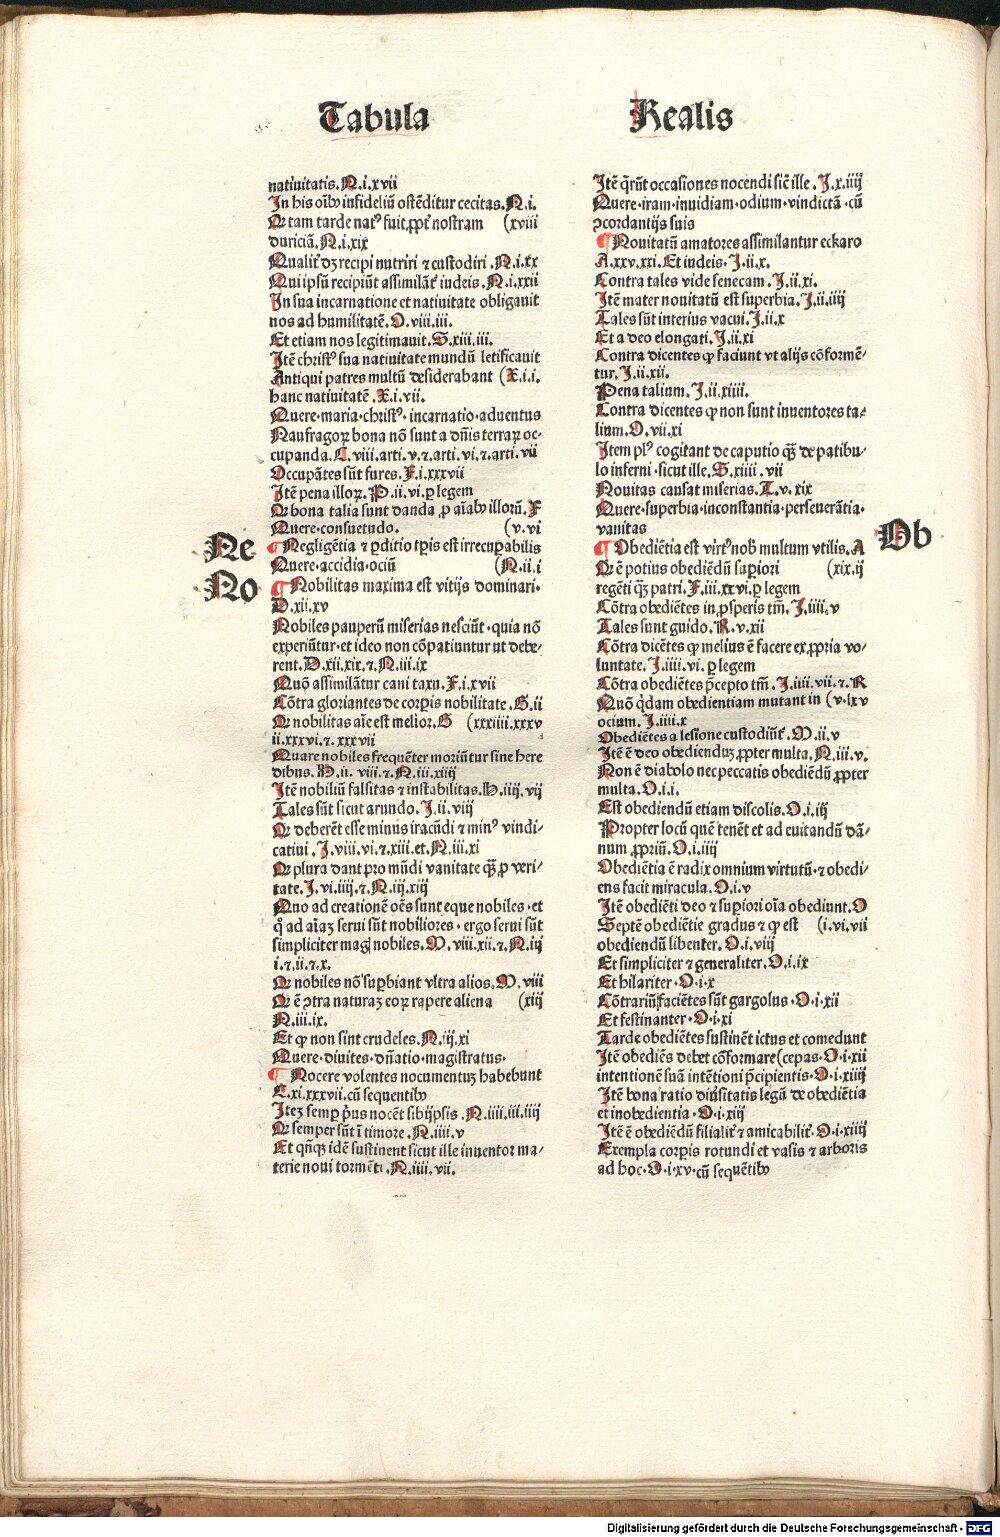 Tabula Realis
natiuitatis. N.i.xvii
In his oĩbꝰ infideliũ ostẽditur cecitas. N.i.
Qr tam tarde natꝰ fuit ꝓpť nostram (xviii
duriciã. N.i.xix
Qualiť dꝫ recipi nutriri ⁊ custodiri. N.i.xx
Qui ipsũ recipiũt assimilãť iudeis. N.i.xxii
In sua incarnatione et natiuitate obligauit
nos ad humilitatẽ. O.viii.iii.
Et etiam nos legitimauit. S.xiii.iii.
Itẽ christꝰ sua natiuitate mundũ letificauit
Antiqui patres multũ desiderabant (X.i.i.
hanc natiuitatẽ. X.i.vii.
Quere·maria·christꝰ·incarnatio·aduentus
Naufragoꝝ bona nõ sunt a dñis terraꝝ oc-
cupanda. C.viii.arti.v.⁊.arti.vi.⁊.arti.vii
Occupãtes sũt fures. F.i.xxxvii
Itẽ pena illoꝝ. P.ii.vi.ꝑ legem
Qr bona talia sunt danda ꝓ aĩabꝰ illorũ. F
Quere·consuetudo. (v.vi
Ne
¶ Negligẽtia ⁊ ꝑditio tꝑis est irrecuꝑabilis
Quere·accidia·ociũ (N.ii.i
No
¶ Nobilitas maxima est vitijs dominari·
D.xii.xv
Nobiles pauperũ miserias nesciũt·quia nõ
experiũtur·et ideo non cõpatiuntur ut debe-
rent. D.xii.xix.⁊.N.iii.ix
Quõ assimilãtur cani taxu. F.i.xvii
Cõtra gloriantes de corꝑis nobilitate. G.ii
Qr nobilitas aĩe est melior. G (xxxiiii.xxxv
ii.xxxvi.⁊.xxxvii
Quare nobiles frequẽter moriũtur sine here
dibus. H.ii.viii.⁊.N.iii.xiiij
Itẽ nobiliũ falsitas ⁊ instabilitas. H.iiij.vij
Tales sũt sicut arundo. I.ii.viij
Qr deberẽt esse minus iracũdi ⁊ minꝰ vindi-
catiui. I.viii.vi.⁊.xiii.et.N.iii.xi
Qr plura dant pro mũdi vanitate q̃ꝫ ꝓ veri-
tate. I.vi.iiij.⁊.N.iij.xiij
Quo ad creationẽ oẽs sunt eque nobiles·et
qͦ ad aĩaꝫ serui sũt nobiliores·ergo serui sũt
simpliciter mag nobiles. M.viii.xii.⁊.N.iij
i.⁊.ii.⁊.x.
Qr nobiles nõ suꝑbiant vltra alios. M.viii
Qr ẽ ꝯtra naturaꝫ eoꝝ rapere aliena (xiij
N.iii.ix.
Et ꝙ non sint crudeles. N.iij.xi
Quere·diuites·dñatio·magistratus·
¶ Nocere volentes nocumentuꝫ habebunt
C.xi.xxxvii.cũ sequentibꝰ
Iteꝫ semꝑ pͥus nocẽt sibijpsis. N.iiii.iii.iiij
Qr semper sũt ĩ timore. N.iiii.v
Et qñqꝫ idẽ sustinent sicut ille inuentor ma-
terie noui tormẽti. N.iiii.vii.
Itẽ q̃rũt occasiones nocendi sič ille. I.x.iiij
Quere·iram·inuidiam·odium·vindictã·cũ
ꝯcordantijs suis
¶ Nouitatũ amatores assimilantur eckaro
A.xxv.xxi. Et iudeis. I.ii.x.
Contra tales vide senecam. I.ii.xi.
Itẽ mater nouitatũ est superbia. I.ii.iiij
Tales sũt interius vacui. I.ii.x
Et a deo elongati. I.ii.xi
Contra dicentes ꝙ faciunt vt alijs cõformẽ-
tur. I.ii.xii.
Pena talium. I.ii.xiiii.
Contra dicentes ꝙ non sunt inuentores ta-
lium. O.vii.xi
Item plꝰ cogitant de caputio q̃ꝫ de patibu-
lo inferni·sicut ille. S.xiiii.vii
Nouitas causat miserias. T.v.xix
Quere·superbia·inconstantia·perseuerãtia·
vanitas
Ob
¶ Obediẽtia est virtꝰ nobꝭ multum vtilis. A
Qr ẽ potius obediẽdũ suꝑiori (xix.ij
regẽti q̃ꝫ patri. F.iii.xxvi.ꝑ legem
Cõtra obediẽtes in ꝓsperis tm̃. I.iiii.v
Tales sunt guido. R.v.xii
Cõtra dicẽtes ꝙ melius ẽ facere ex ꝓpria vo-
luntate. I.iiii.vi.ꝑ legem
Cõtra obediẽtes p̃cepto tm̃. I.iiii.vii.⁊.R
Quõ q̃dam obedientiam mutant in (v.lxv
ocium. I.iiii.x
Obediẽtes a lesione custodiũť. M.ii.v
Itẽ ẽ deo obedienduꝫ ꝓpter multa. N.iii.v.
Non ẽ diabolo nec peccatis obediẽdũ ꝓpter
multa. O.i.i.
Est obediendũ etiam discolis. O.i.iij
Propter locũ quẽ tenẽt et ad euitandũ dã-
num ꝓpriũ. O.i.iiij
Obediẽtia ẽ radix omnium virtutũ·⁊ obedi-
ens facit miracula. O.i.v
Itẽ obediẽti deo ⁊ suꝑiori oĩa obediunt. O
Septẽ obediẽtie gradus ⁊ ꝙ est (i.vi.vii
obediendũ libenter. O.i.viij
Et simpliciter ⁊ generaliter. O.i.ix
Et hilariter·O·i·x
Cõtrariũ faciẽtes sũt gargolus·O·i·xii
Et festinanter·O·i·xi
Tarde obediẽtes sustinẽt ictus et comedunt
Itẽ obediẽs debet cõformare (cepas·O·i·xii
intentionẽ suã intẽtioni p̃cipientis·O·i·xiiij
Itẽ bona ratio diũsitatis legũ de obediẽtia
et inobedientia·O·i·xiij
Itẽ ẽ obediẽdũ filialiť ⁊ amicabiliť·O·i·xiiij
Exempla corꝑis rotundi et vasis ⁊ arboris
ad hoc·O·i·xv·cũ seq̃utibꝰ
Digitalisierung gefördert durch die Deutsche Forschungsgemeinschaft - DFG